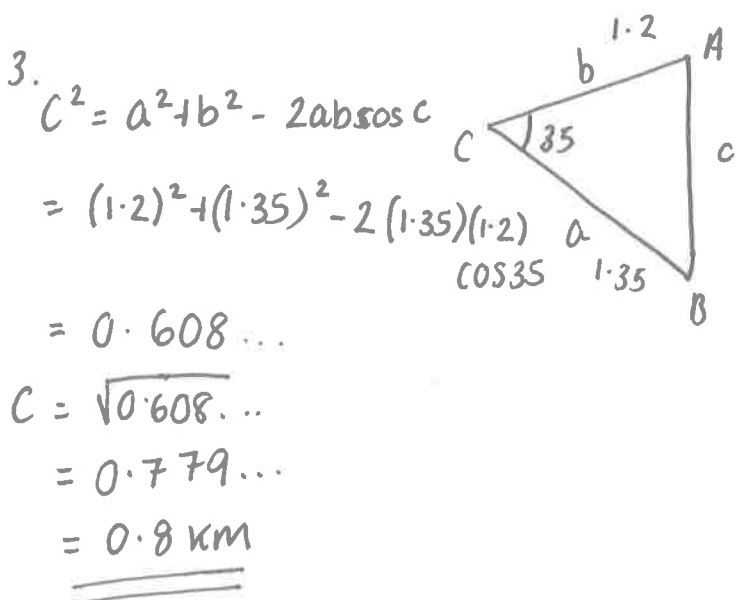 3.
C² = a² + b² - 2abcos c
= (1.2)² + (1.35)² - 2 (1.35)(1.2)
cos35
= 0.608...
C = √0.608...
= 0.779...
= 0.8 km
1.2
b
A
C
35
c
a
1.35
B